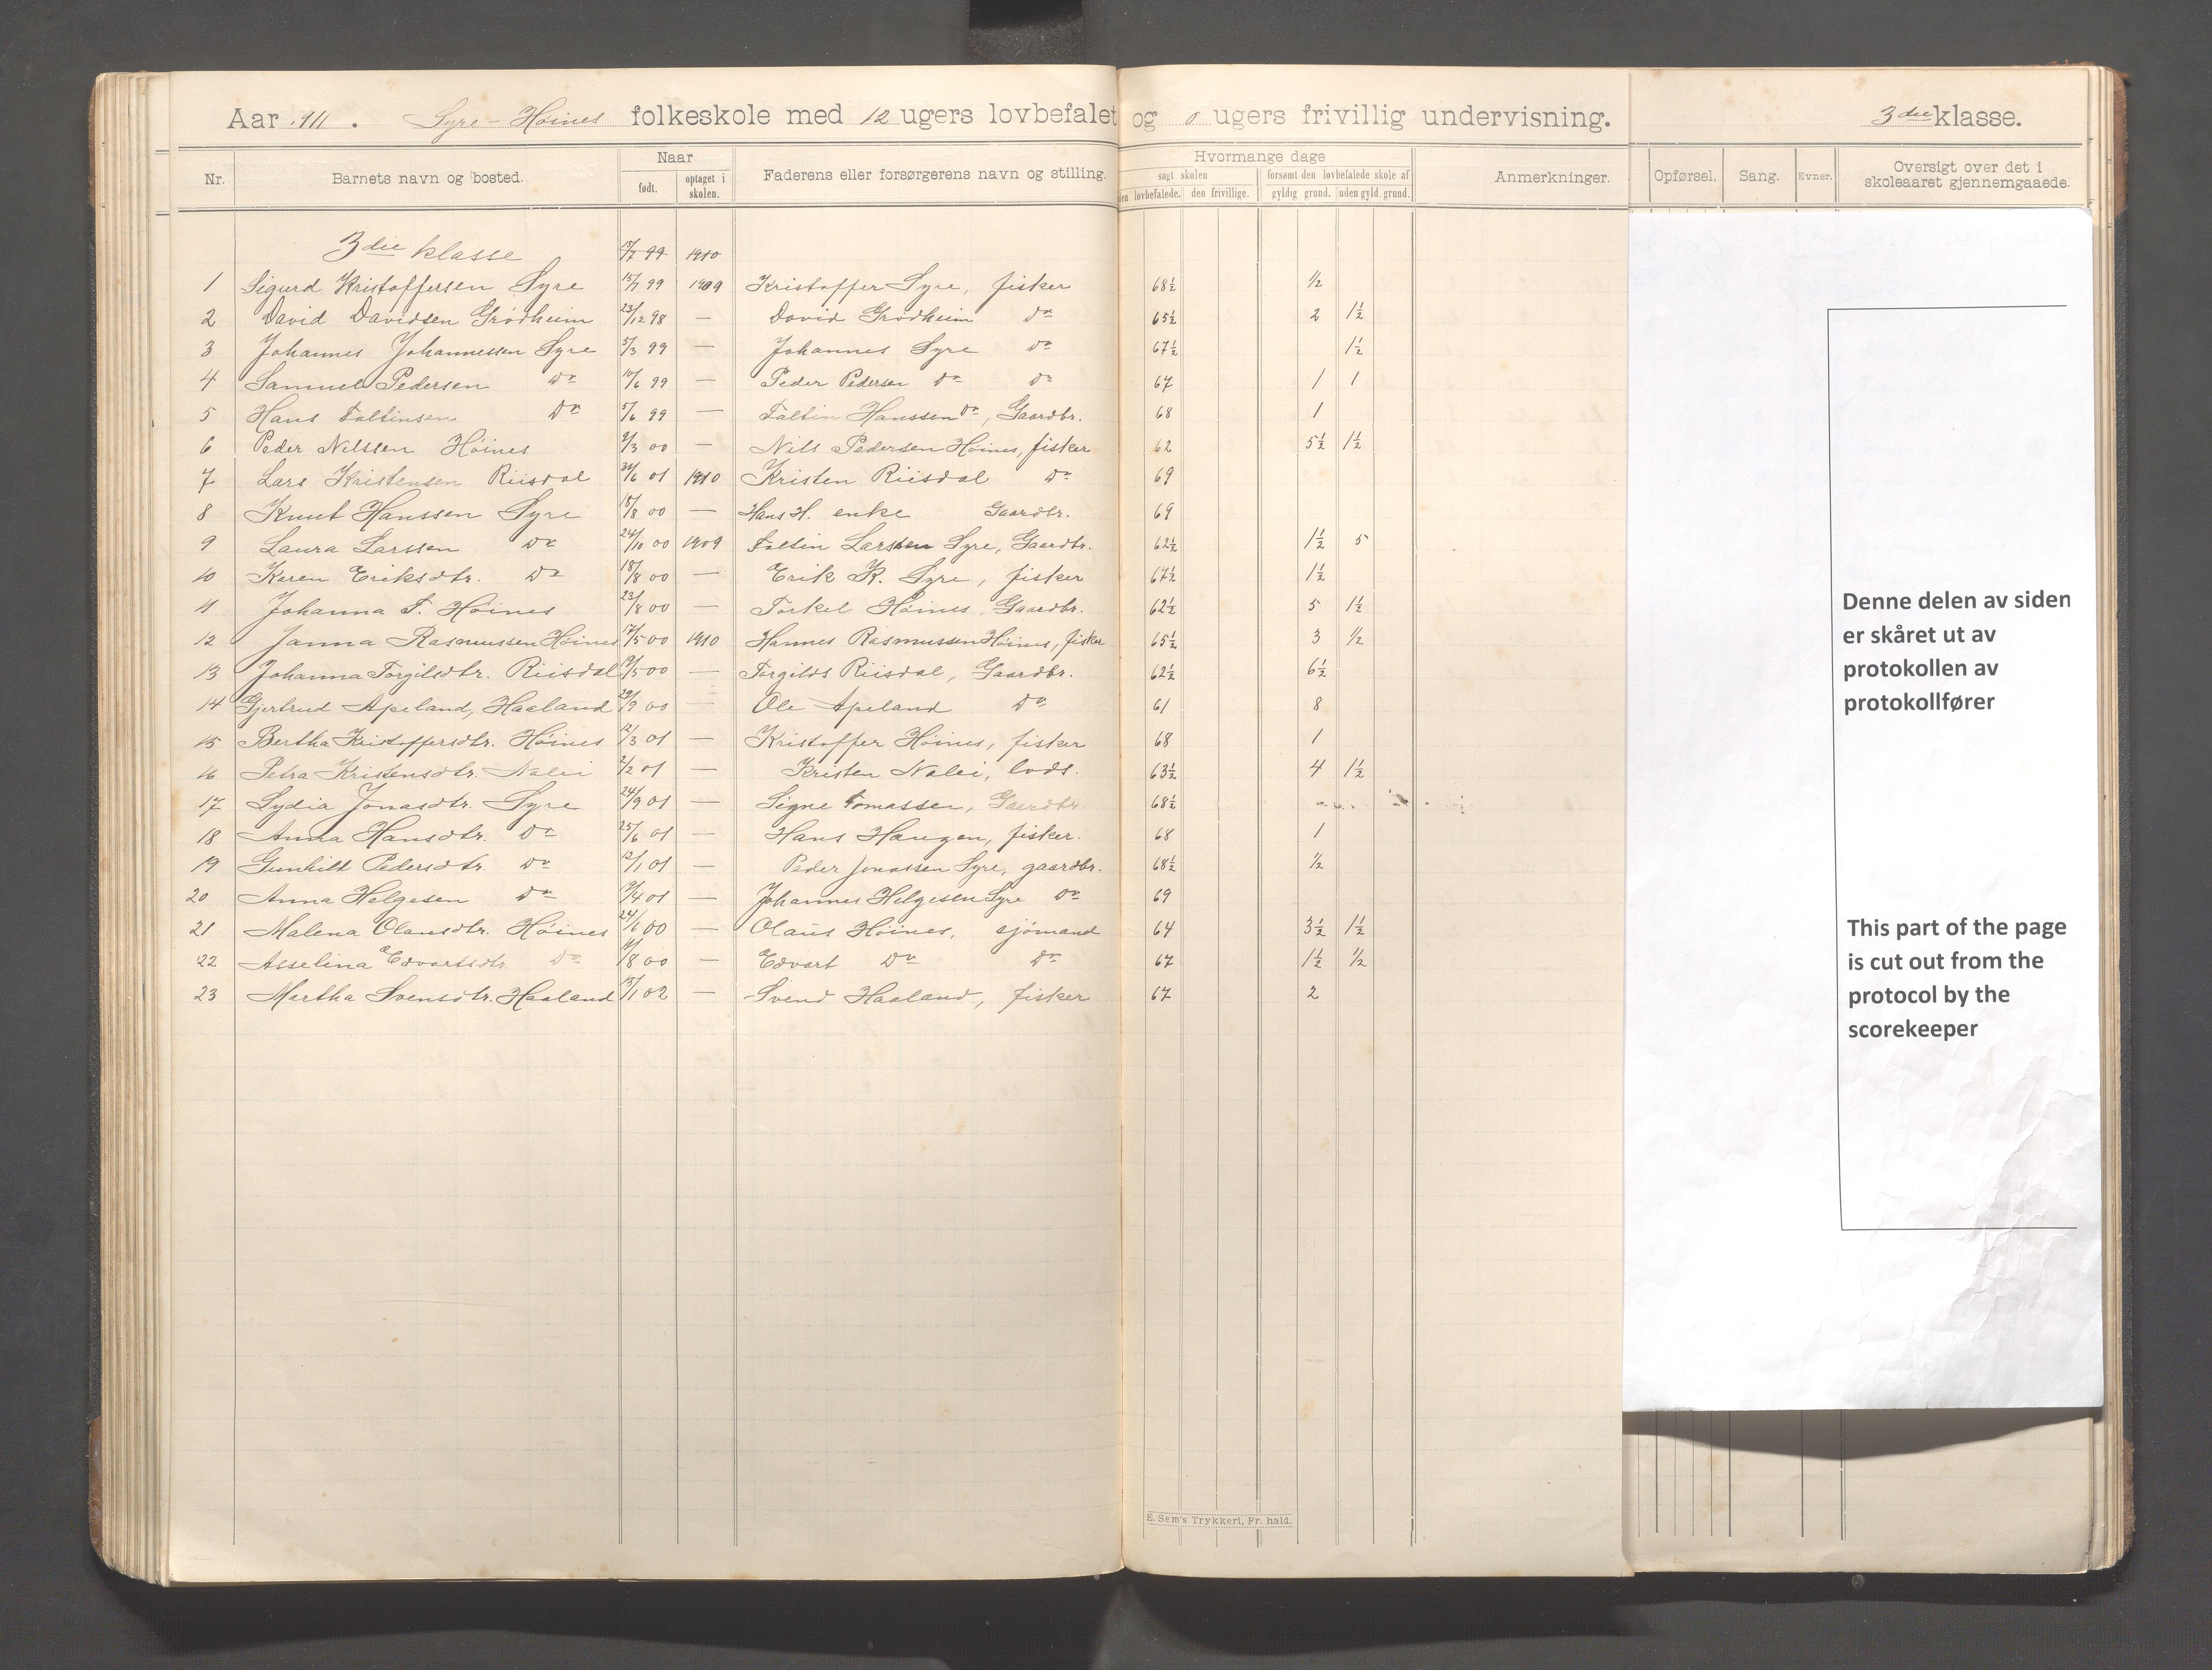 Aar 1911. Syre-Høines folkeskole med 12 ugers lovbefalet og 0 ugers frivillig undervisning. 3die klasse.
Nr. Barnets navn og bosted. Naar født. optaget i skolen. Faderens eller forsørgerens navn og stilling. Hvormange dage søgt skolen den lovbefalede. den frivillige. forsømt den lovbefalede skole af gyldig grund. uden gyld. grund. Anmerkninger. Opførsel. Sang. Evner. Oversigt over det i skoleaaret gjennemgaaede.
3die klasse 15/7 99 1910
1 Sigurd Kristoffersen Syre 15/7 99 1909 Kristoffer Syre, fisker 68½ ½
2 David Davidsen Grødheim 23/12 98 — David Grødheim Do 65½ 2 1½
3 Johannes Johannessen Syre 5/3 99 — Johannes Syre Do 67½ 1½
4 Samuel Pedersen Do 10/6 99 — Peder Pedersen Do Do 67 1 1
5 Hans Faltinsen Do 5/6 99 — Faltin Hanssen Do, Gaardbr. 68 1
6 Peder Nilssen Høines 9/3 00 — Nils Pedersen Høines, fisker 62 5½ 1½
7 Lars Kristensen Riisdal /6 01 1910 Kristen Riisdal Do 69
8 Knut Hanssen Syre 18/8 00 — Hans H. enke Gaardbr. 69
9 Laura Larssen Do 24/10 00 1909 Faltin Larssen Syre, Gaardbr. 62½ 1½ 5
10 Keren Eriksdtr. Do 18/8 00 — Erik K. Syre, fisker 67½ 1½
11 Johanna T. Høines 23/8 00 — Torkel Høines, Gaardbr. 62½ 5 1½
12 Janna Rasmussen Høines 17/5 00 1910 Hannes Rasmussen Høines, fisker 65½ 3 ½
13 Johanna Torgilsdtr. Riisdal 19/5 00 — Torgilds Riisdal, Gaardbr. 62½ 6½
14 Gjertrud Apeland, Haaland 29/9 00 — Ole Apeland Do 61 8
15 Bertha Kristoffersdtr. Høines 12/3 01 — Kristoffer Høines, fisker 68 1
16 Petra Kristensdtr. Nalei 2/2 01 — Kristen Nalei, lods. 63½ 4 1½
17 Lydia Jonasdtr. Syre 24/9 01 — Signe Tomassen, Gaardbr. 68½
18 Anna Hansdtr. Do 25/6 01 — Hans Haugen, fisker. 68 1
19 Gunhilt Pedersdtr. Do 12/1 01 — Peder Jonassen Syre, gaardbr. 68½ ½
20 Anna Helgesen Do 19/4 01 — Johannes Helgesen Syre Do 69
21 Malena Olausdtr. Høines 24/6 00 — Olaus Høines, sjømand 64 3½ 1½
22 Asselina Edvartsdtr. Do 11/8 00 — Edvart Do Do 67 1½ ½
23 Martha Svensdtr. Haaland 15/1 02 — Svend Haaland, fisker 67 2
E. Sem's Trykkeri, Fr. hald.
Denne delen av siden
er skåret ut av
protokollen av
protokollfører
This part of the page
is cut out from the
protocol by the
scorekeeper